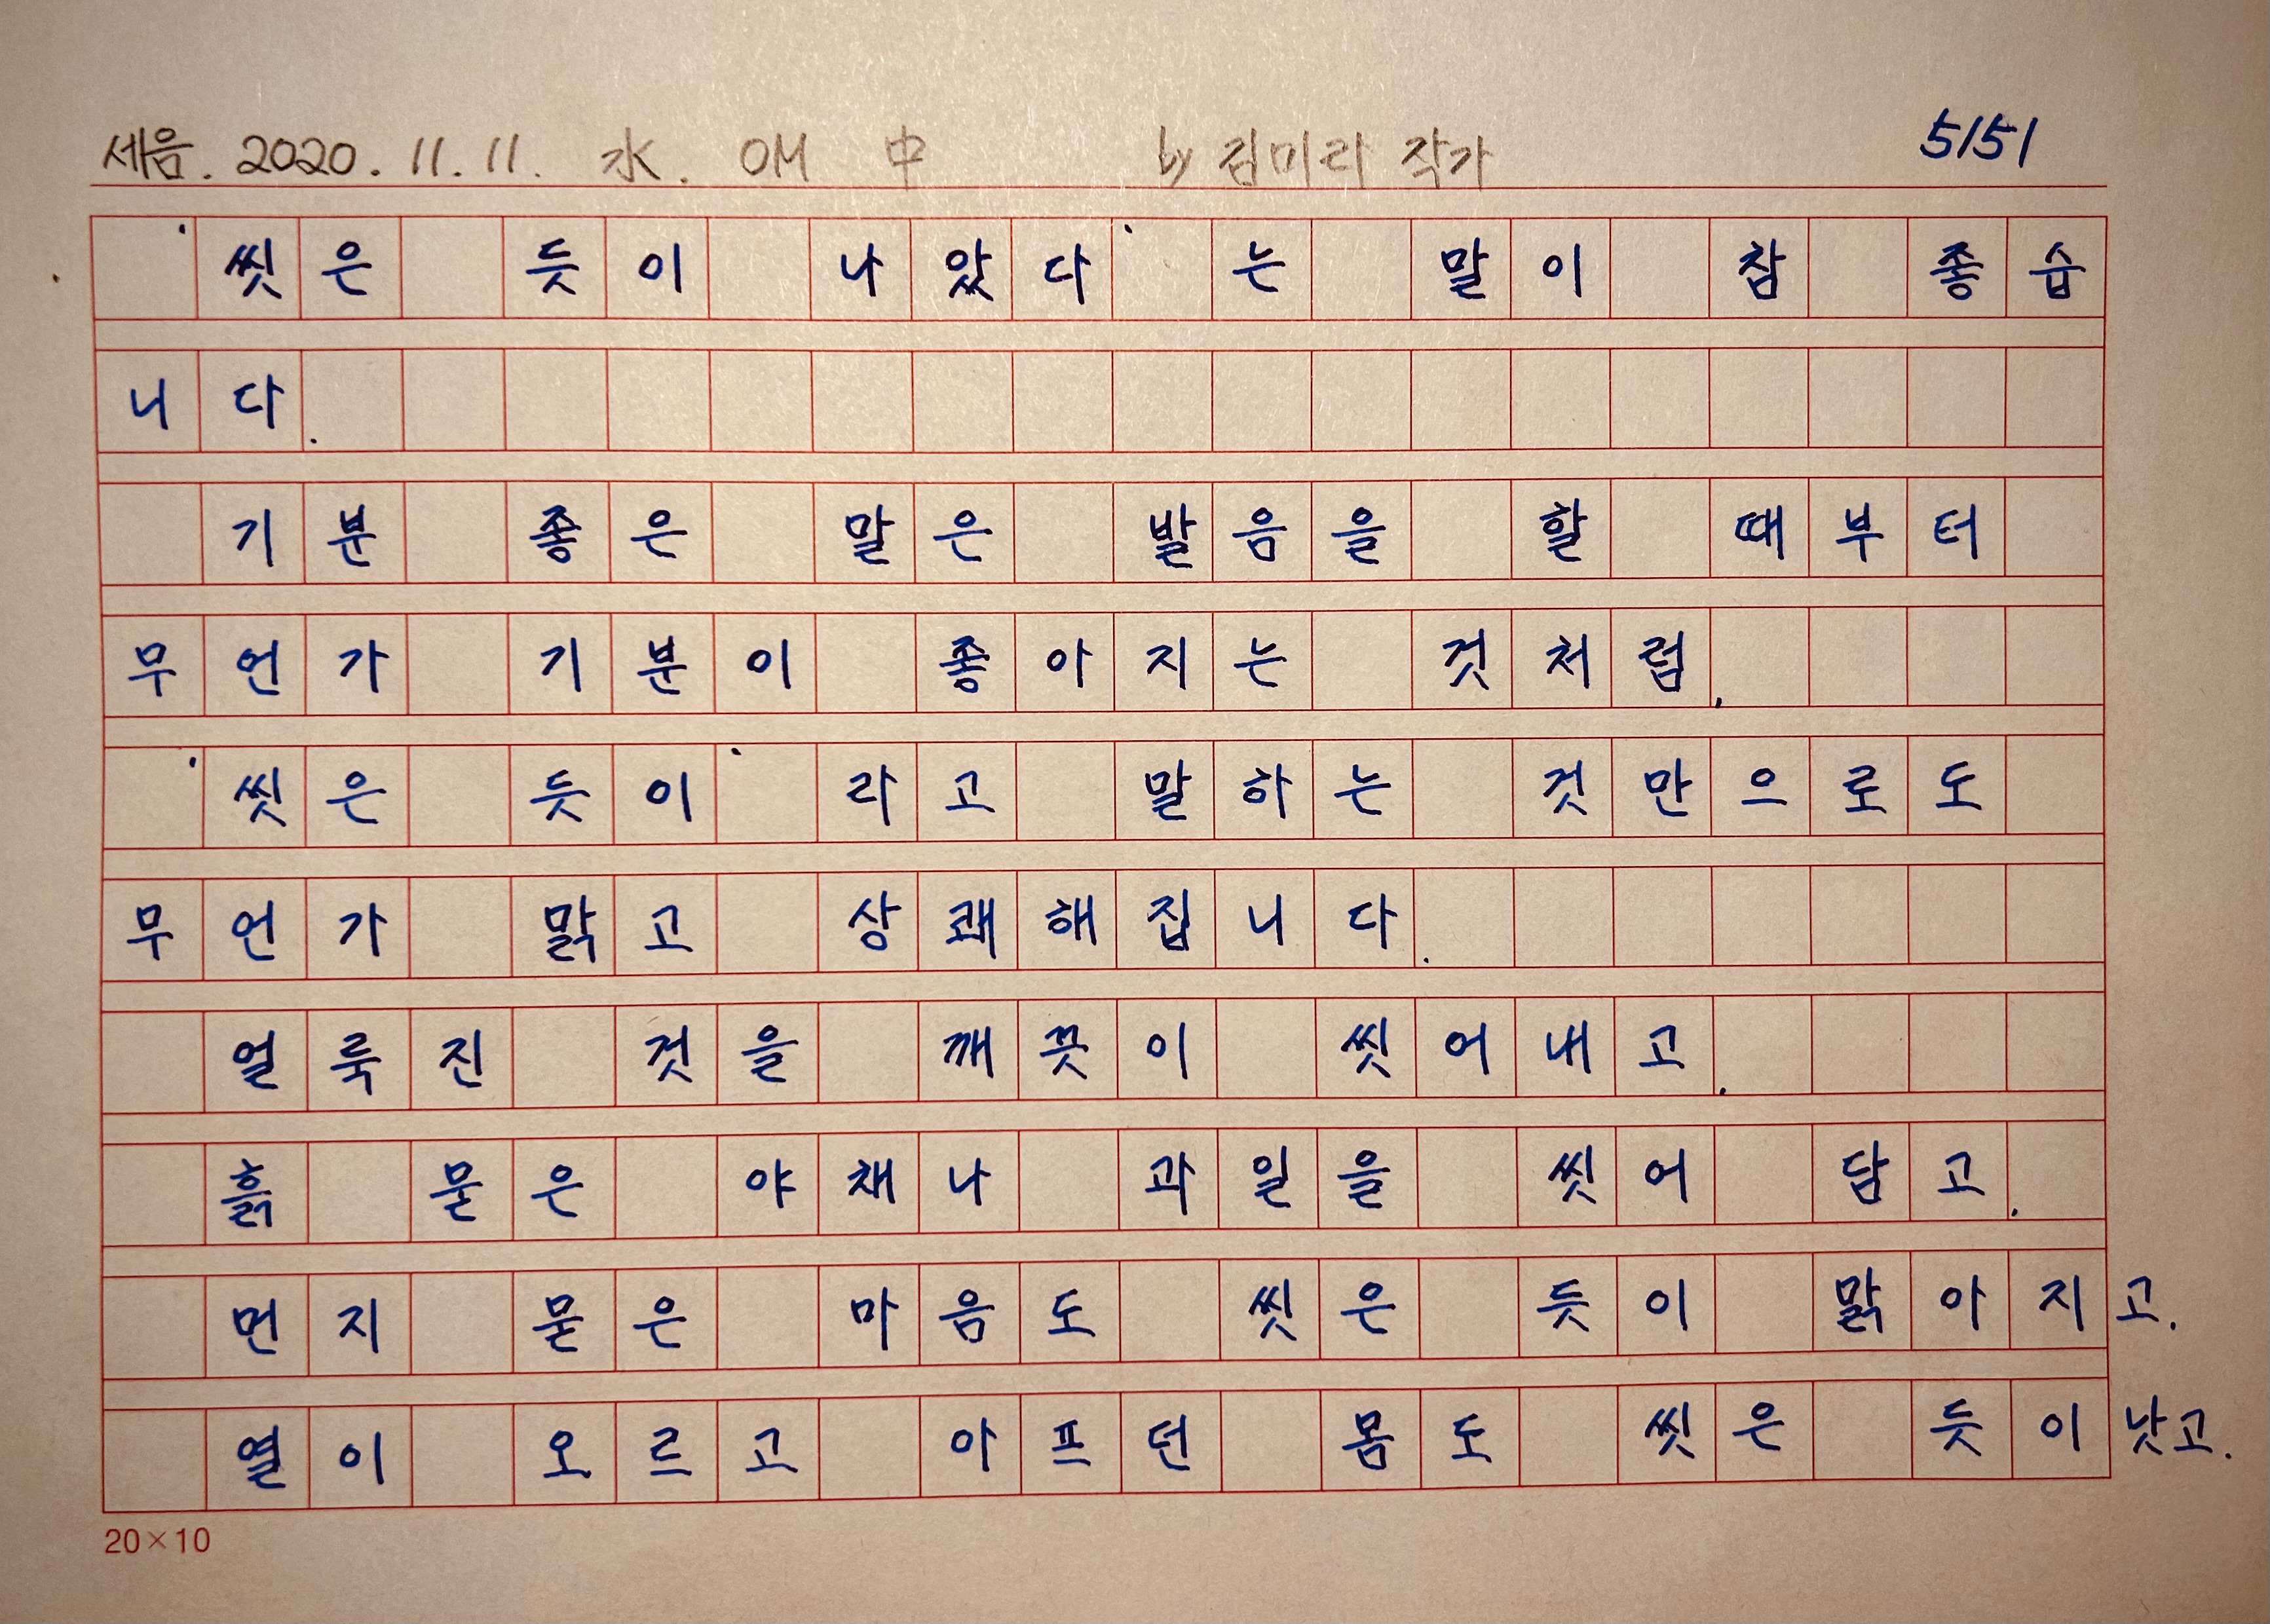 세음. 2020. 11. 11. 水. OM 中 by 김미라 작가 5151
'씻은 듯이 나았다' 는 말이 참 좋습
니다.
기분 좋은 말은 발음을 할 때부터
무언가 기분이 좋아지는 것처럼,
'씻은 듯이' 라고 말하는 것만으로도
무언가 맑고 상쾌해집니다.
얼룩진 것을 깨끗이 씻어내고,
흙 묻은 야채나 과일을 씻어 담고,
먼지 묻은 마음도 씻은 듯이 맑아지고.
열이 오르고 아프던 몸도 씻은 듯이 낫고.
20×10